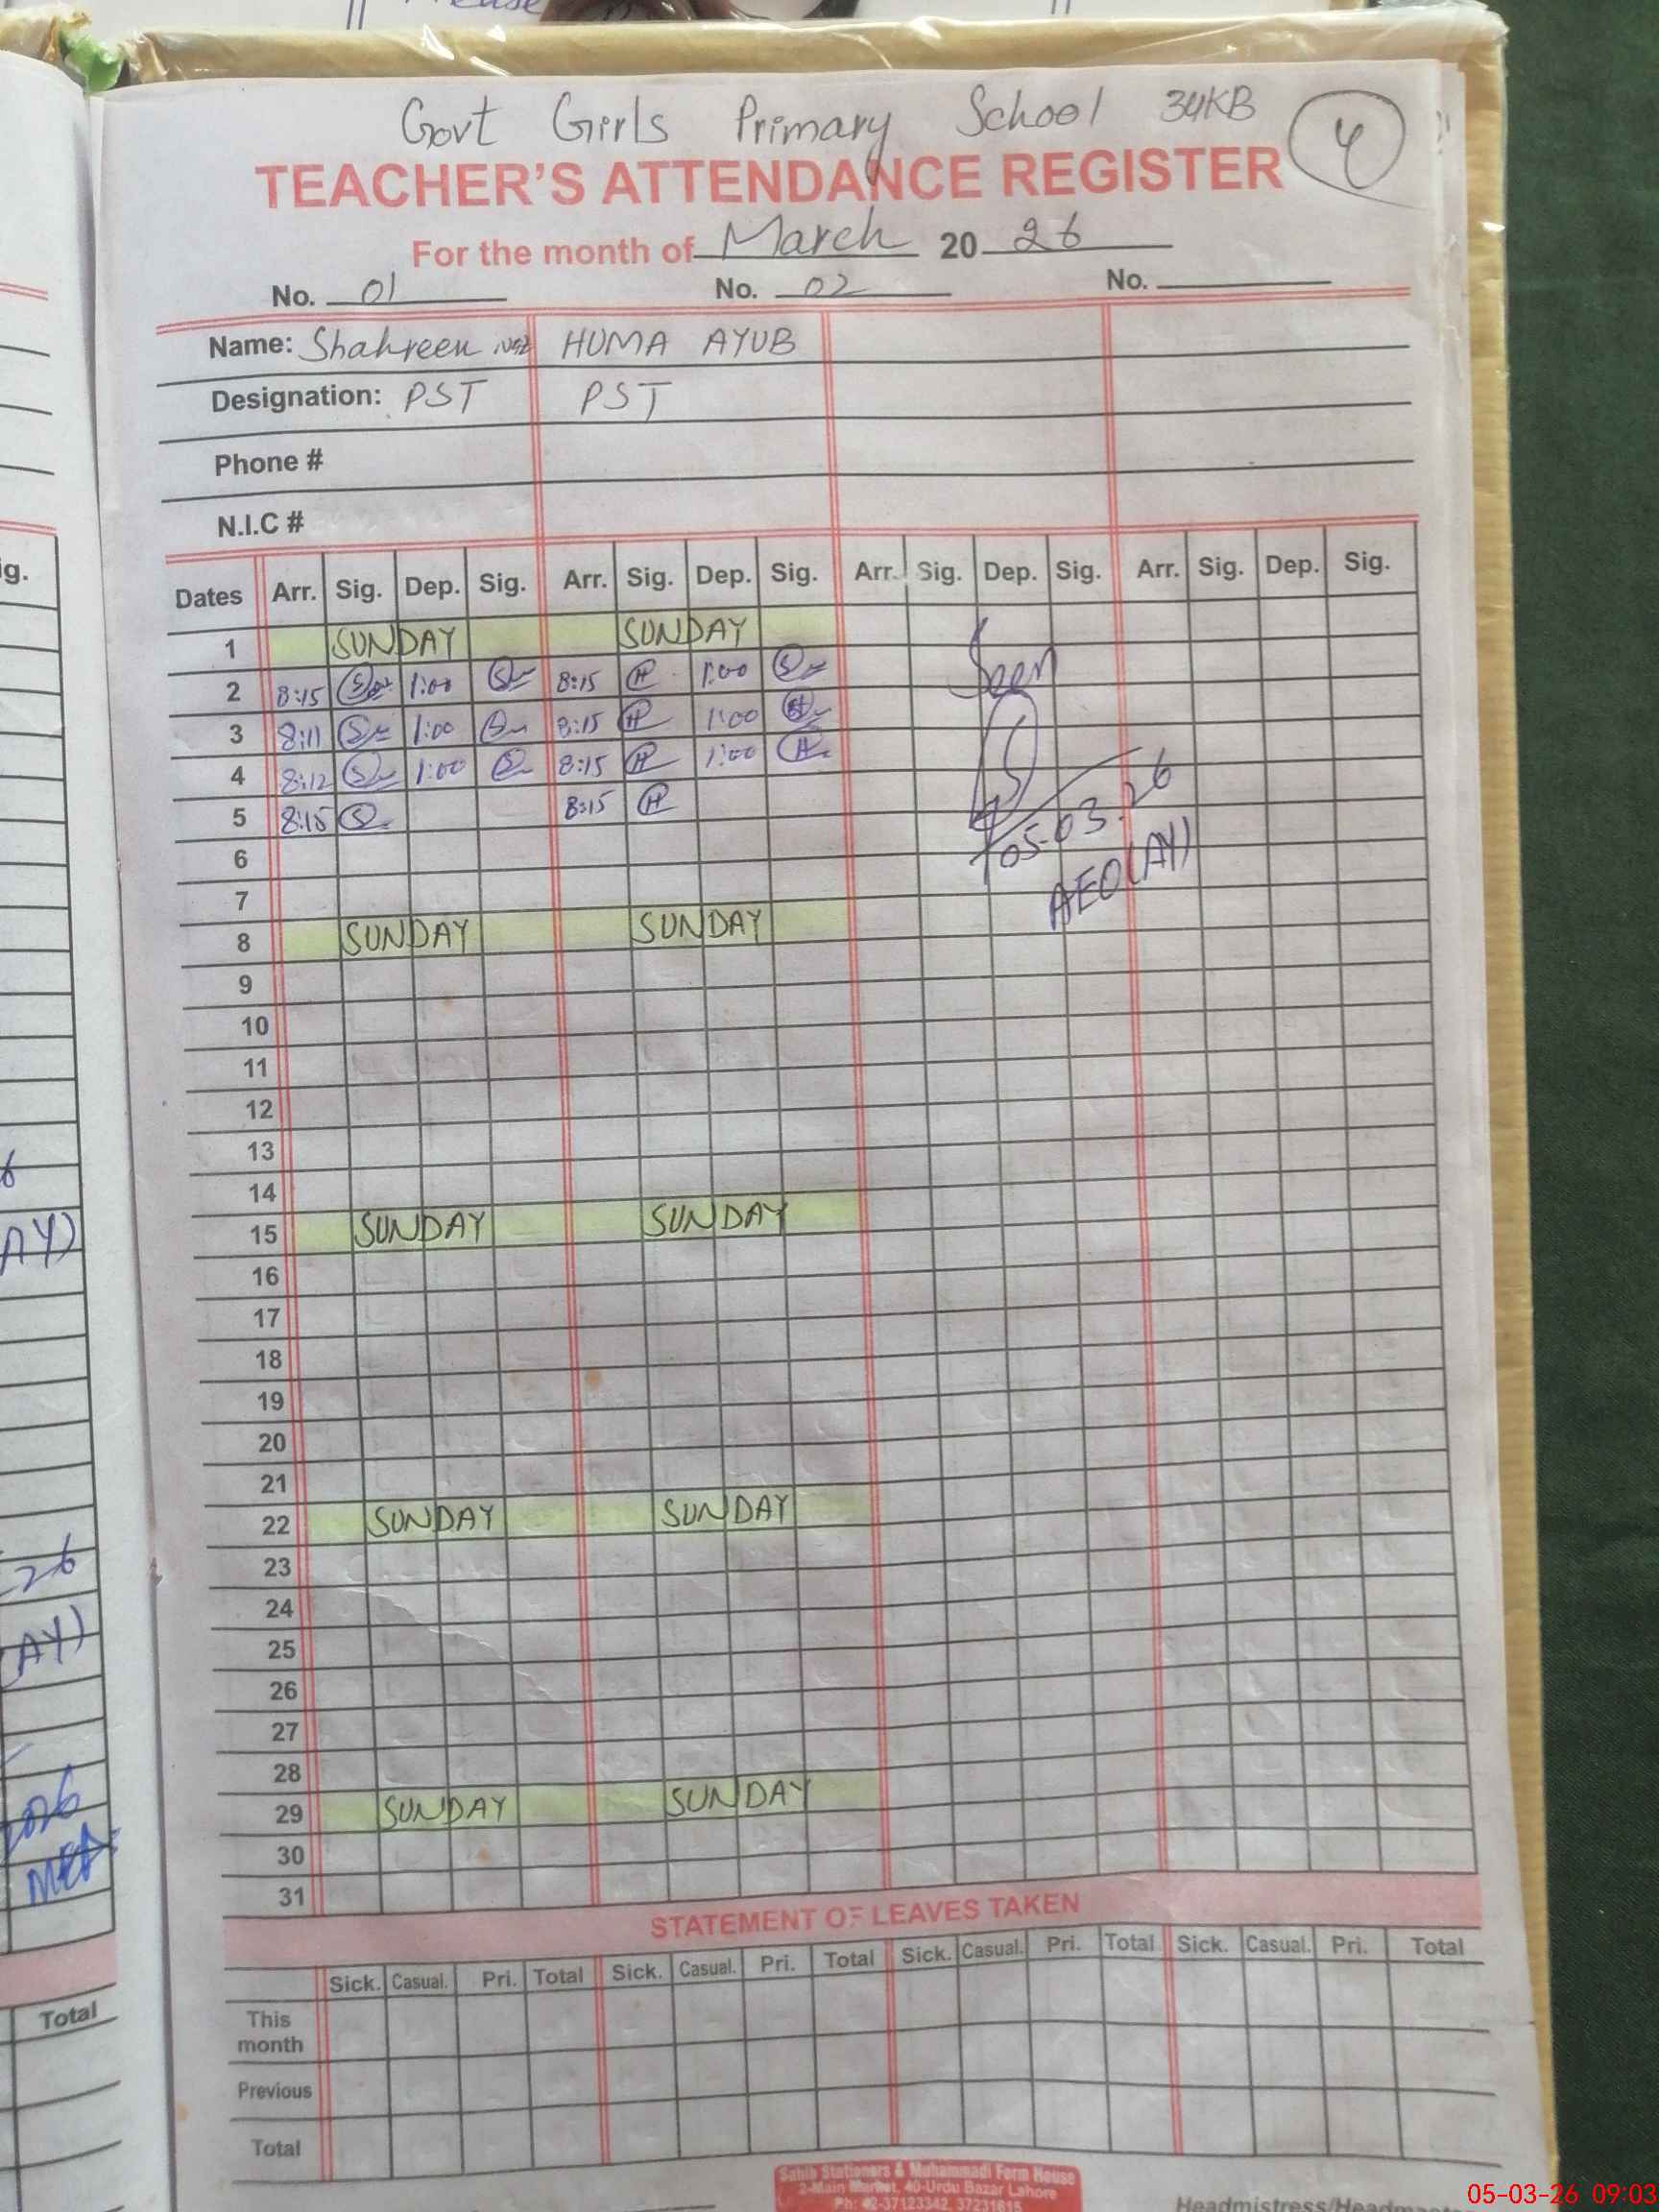 Govt Girls Primary School 34KB
4
TEACHER'S ATTENDANCE REGISTER
For the month of March 2026
No. 01 No. 02 No.
Name: Shahreen HUMA AYUB
Designation: PST PST
Phone #
N.I.C #
Dates Arr. Sig. Dep. Sig. Arr. Sig. Dep. Sig. Arr. Sig. Dep. Sig. Arr. Sig. Dep. Sig.
1 SUNDAY SUNDAY
2 8:15 1:00 8:15 H 1:00
3 8:11 1:00 8:15 H 1:00
4 8:12 1:00 8:15 H 1:00
5 8:15 8:15 H
Seen
05-03-26
AEO(AY)
6
7
8 SUNDAY SUNDAY
9
10
11
12
13
14
15 SUNDAY SUNDAY
16
17
18
19
20
21
22 SUNDAY SUNDAY
23
24
25
26
27
28
29 SUNDAY SUNDAY
30
31
STATEMENT OF LEAVES TAKEN
Sick. Casual. Pri. Total Sick. Casual. Pri. Total Sick. Casual. Pri. Total Sick. Casual. Pri. Total
This month
Previous
Total
Sahib Stationers & Muhammadi Form House
2-Main Market, 40-Urdu Bazar Lahore
Ph: 42-37123342, 37231615
ig.
AY)
26
(AY)
Total
05-03-26 09:03